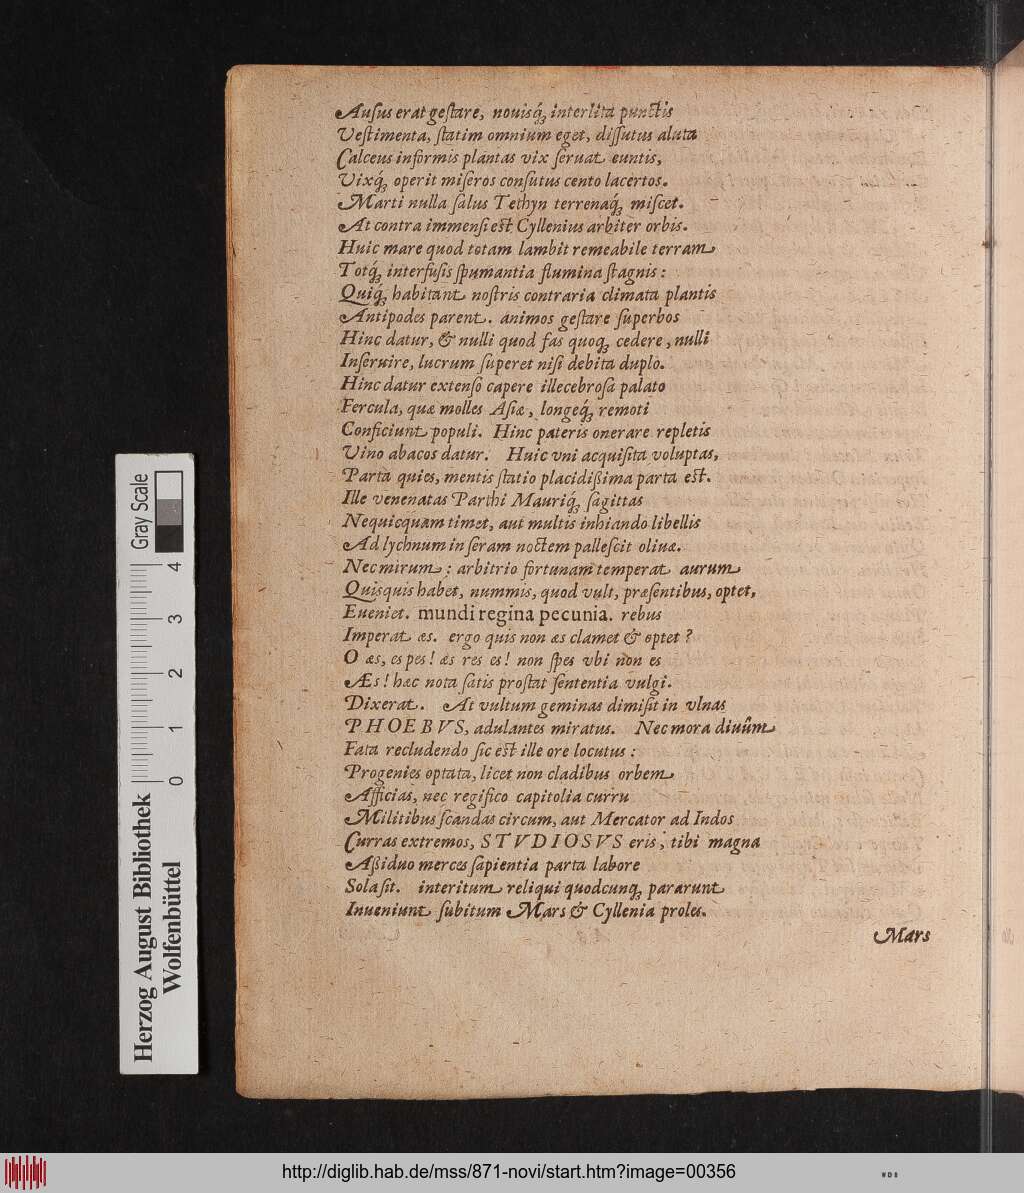 Auſus erat geſtare, nouisq́ꝫ interlita punctis
Veſtimenta, ſtatim omnium eget, diſſutus aluta
Calceus informis plantas vix ſeruat euntis,
Vixq́ꝫ operit miſeros conſutus cento lacertos.
Marti nulla ſalus Tethyn terrenaq́ꝫ miſcet.
At contra immenſi eſt Cyllenius arbiter orbis.
Huic mare quod totam lambit remeabile terram
Totq́ꝫ interfuſis ſpumantia flumina ſtagnis:
Quiq́ꝫ habitant noſtris contraria climata plantis
Antipodes parent. animos geſtare ſuperbos
Hinc datur, & nulli quod fas quoqꝫ cedere, nulli
Inſeruire, lucrum ſuperet niſi debita duplo.
Hinc datur extenſo capere illecebroſa palato
Fercula, quæ molles Aſiæ, longeq́ꝫ remoti
Conficiunt populi. Hinc pateris onerare repletis
Vino abacos datur. Huic vni acquiſita voluptas,
Parta quies, mentis ſtatio placidißima parta eſt.
Ille venenatas Parthi Mauriq́ꝫ ſagittas
Nequicquam timet, aut multis inhiando libellis
Ad lychnum in ſeram noctem palleſcit oliuæ.
Nec mirum: arbitrio fortunam temperat aurum
Quisquis habet, nummis, quod vult, præſentibus, optet,
Eueniet. mundi regina pecunia. rebus
Imperat æs. ergo quis non æs clamet & optet?
O æs, es pes! æs res es! non ſpes vbi non es
Æs! hæc nota ſatis proſtat ſententia vulgi.
Dixerat. At vultum geminas dimiſit in vlnas
PHOEBVS, adulantes miratus. Nec mora diuûm
Fata recludendo ſic eſt ille ore locutus:
Progenies optata, licet non cladibus orbem
Afficias, nec regifico capitolia curru
Militibus ſcandas circum, aut Mercator ad Indos
Curras extremos, STVDIOSVS eris, tibi magna
Aßiduo merces ſapientia parta labore
Sola ſit. interitum reliqui quodcunqꝫ pararunt
Inueniunt ſubitum Mars & Cyllenia proles.
Mars
Gray Scale
0 1 2 3 4
Herzog August Bibliothek
Wolfenbüttel
http://diglib.hab.de/mss/871-novi/start.htm?image=00356